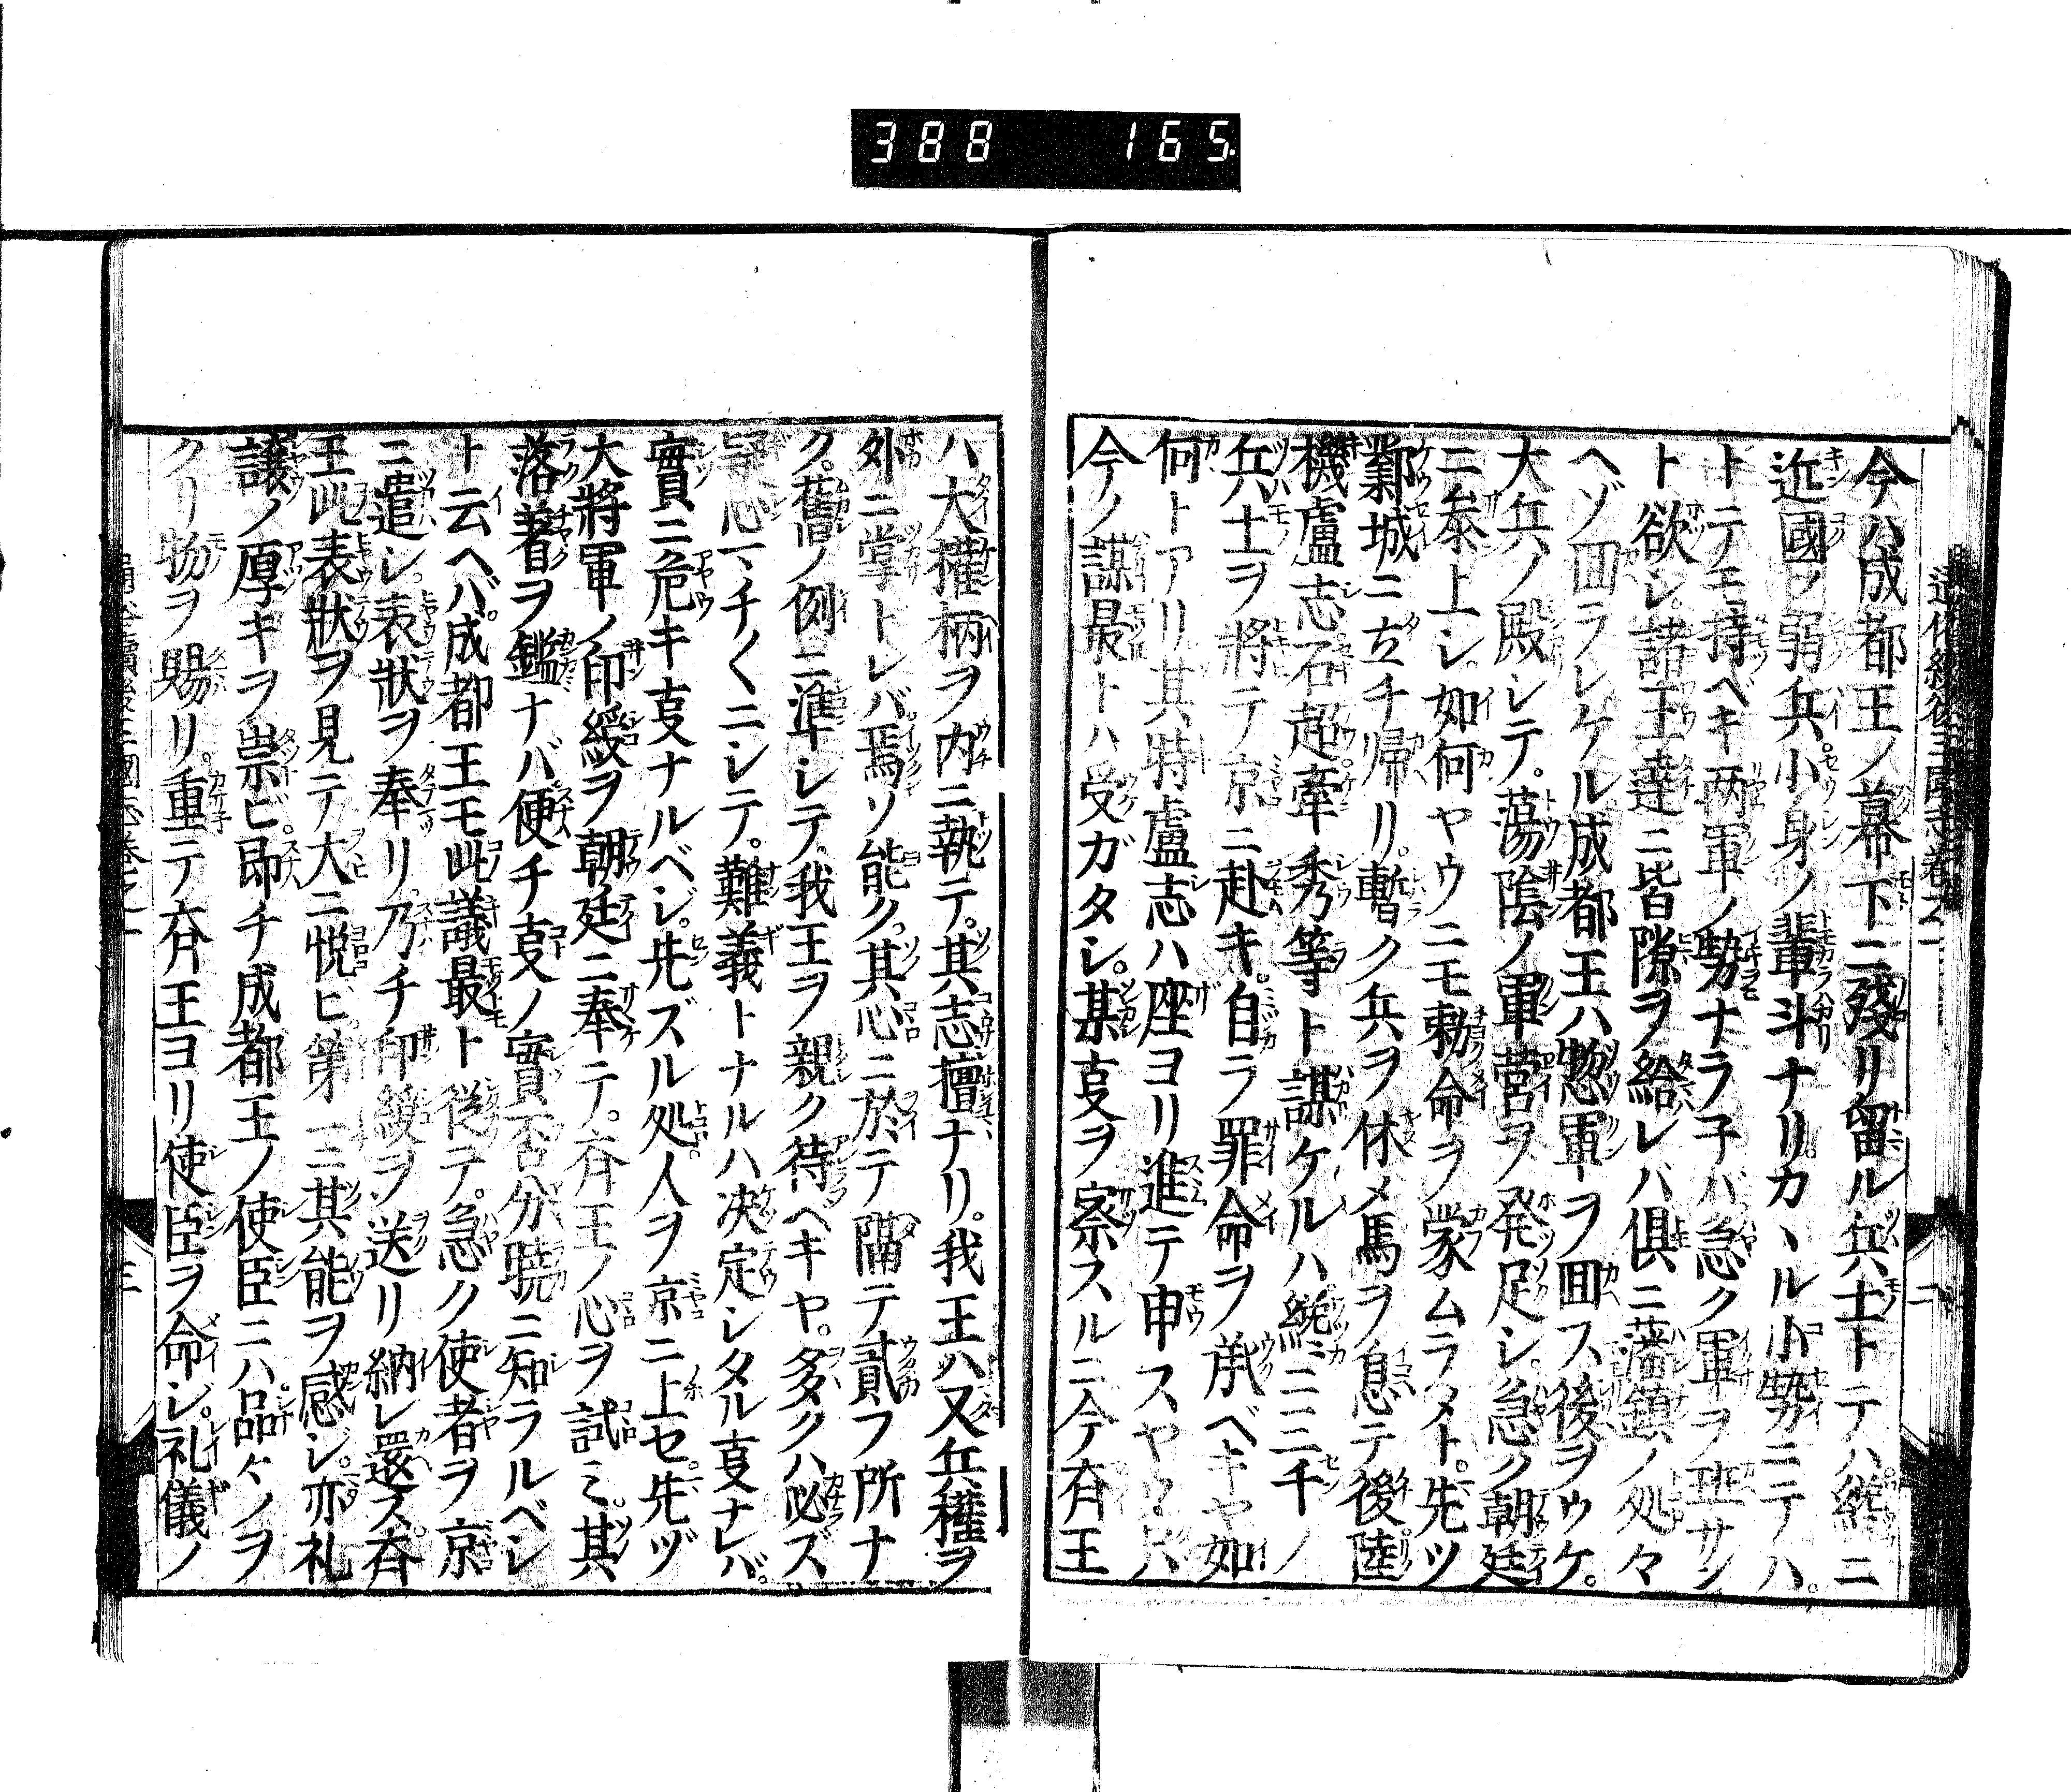 388 165
今ハ成都王ノ幕下ニ殘リ留ル兵士トテハ纔ニ
近國ノ弱兵。小身ノ輩斗ナリカヽル小勢ニテハ。
トテモ持ヘキ両軍ノ勢ナラ子バ急ク軍ヲ班サン
ト欲レ。諸王達ニ皆隙ヲ給レバ俱ニ藩鎮ノ処々
ヘゾ回ラレケル成都王ハ惣軍ヲ回ス後ヲウケ。
大兵ノ殿レテ。蕩陰ノ軍營ヲ発足シ。急ク朝廷
ニ奏上シ。如何ヤウニモ勅命ヲ蒙ムラメト。先ツ
鄴城ニ立チ帰リ。暫ク兵ヲ休メ馬ヲ息テ後陸
機盧志石超牽秀等ト謀ケルハ纔ニ二三千ノ
兵士ヲ將テ京ニ赴キ。自ラ罪命ヲ承ベキヤ如
何トアリ其時盧志ハ座ヨリ進テ申スヤウハ
今ノ謀最トハ受ガタシ。某叓ヲ察スルニ今斉王
ハ大権柄ヲ内ニ執テ。其志擅ナリ。我王ハ又兵權ヲ
外ニ掌トレバ。焉ソ能ク。其心ニ於テ隔テ貳フ所ナ
ク。舊ノ例ニ準レテ。我王ヲ親ク待ヘキヤ。多クハ必ズ
疑心マチ〱ニシテ。難義トナルハ决定シタル叓ナレバ。
實ニ危キ叓ナルベシ。先ズル処。人ヲ京ニ上セ。先ヅ
大將軍ノ印綬ヲ朝廷ニ奉テ。斉王ノ心ヲ試ミ。其
落着ヲ鑑ナバ。便チ叓ノ實否分暁ニ知ラルベシ
ト云ヘバ。成都王モ此議最ト従テ。急ク使者ヲ京
ニ遣レ。表狀ヲ奉リ。乃チ印綬ヲ送リ納レ還ス斉
王此表狀ヲ見テ大ニ悦ビ。第一ニ其能ヲ感シ。亦礼
譲ノ厚キヲ崇ビ。即チ成都王ノ使臣ニハ品々ノヲ
クリ物ヲ賜リ。重テ斉王ヨリ使臣ヲ命シ。礼儀ノ